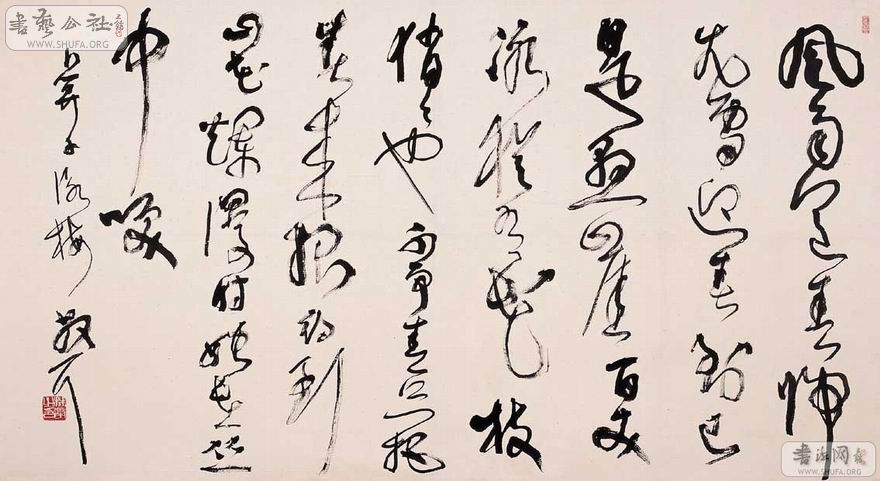 風雨送春歸
飛雪迎春到已
是懸崖百丈
冰猶有花枝
俏〻也不爭春只把
春來報待到
山花爛漫時她在叢
中笑
卜算子咏梅 散耳
書藝公社
WWW.SHUFA.ORG
書法网
WWW.SHUFA.ORG